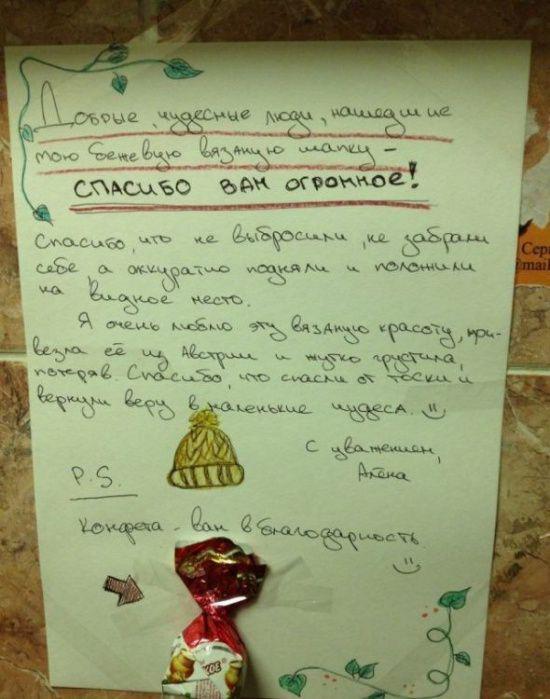 Добрые, чудесные люди, нашедшие
мою бежевую вязаную шапку –
СПАСИБО ВАМ ОГРОМНОЕ!
Спасибо, что не выбросили, не забрали
себе, а аккуратно подняли и положили
на видное место.
Я очень люблю эту вязаную красоту, при-
везла её из Австрии и жутко грустила,
потеряв. Спасибо, что спасли от тоски и
вернули веру в маленькие чудеса.
С уважением,
Алёна
P.S.
Конфета - вам в благодарность
Сер
mail